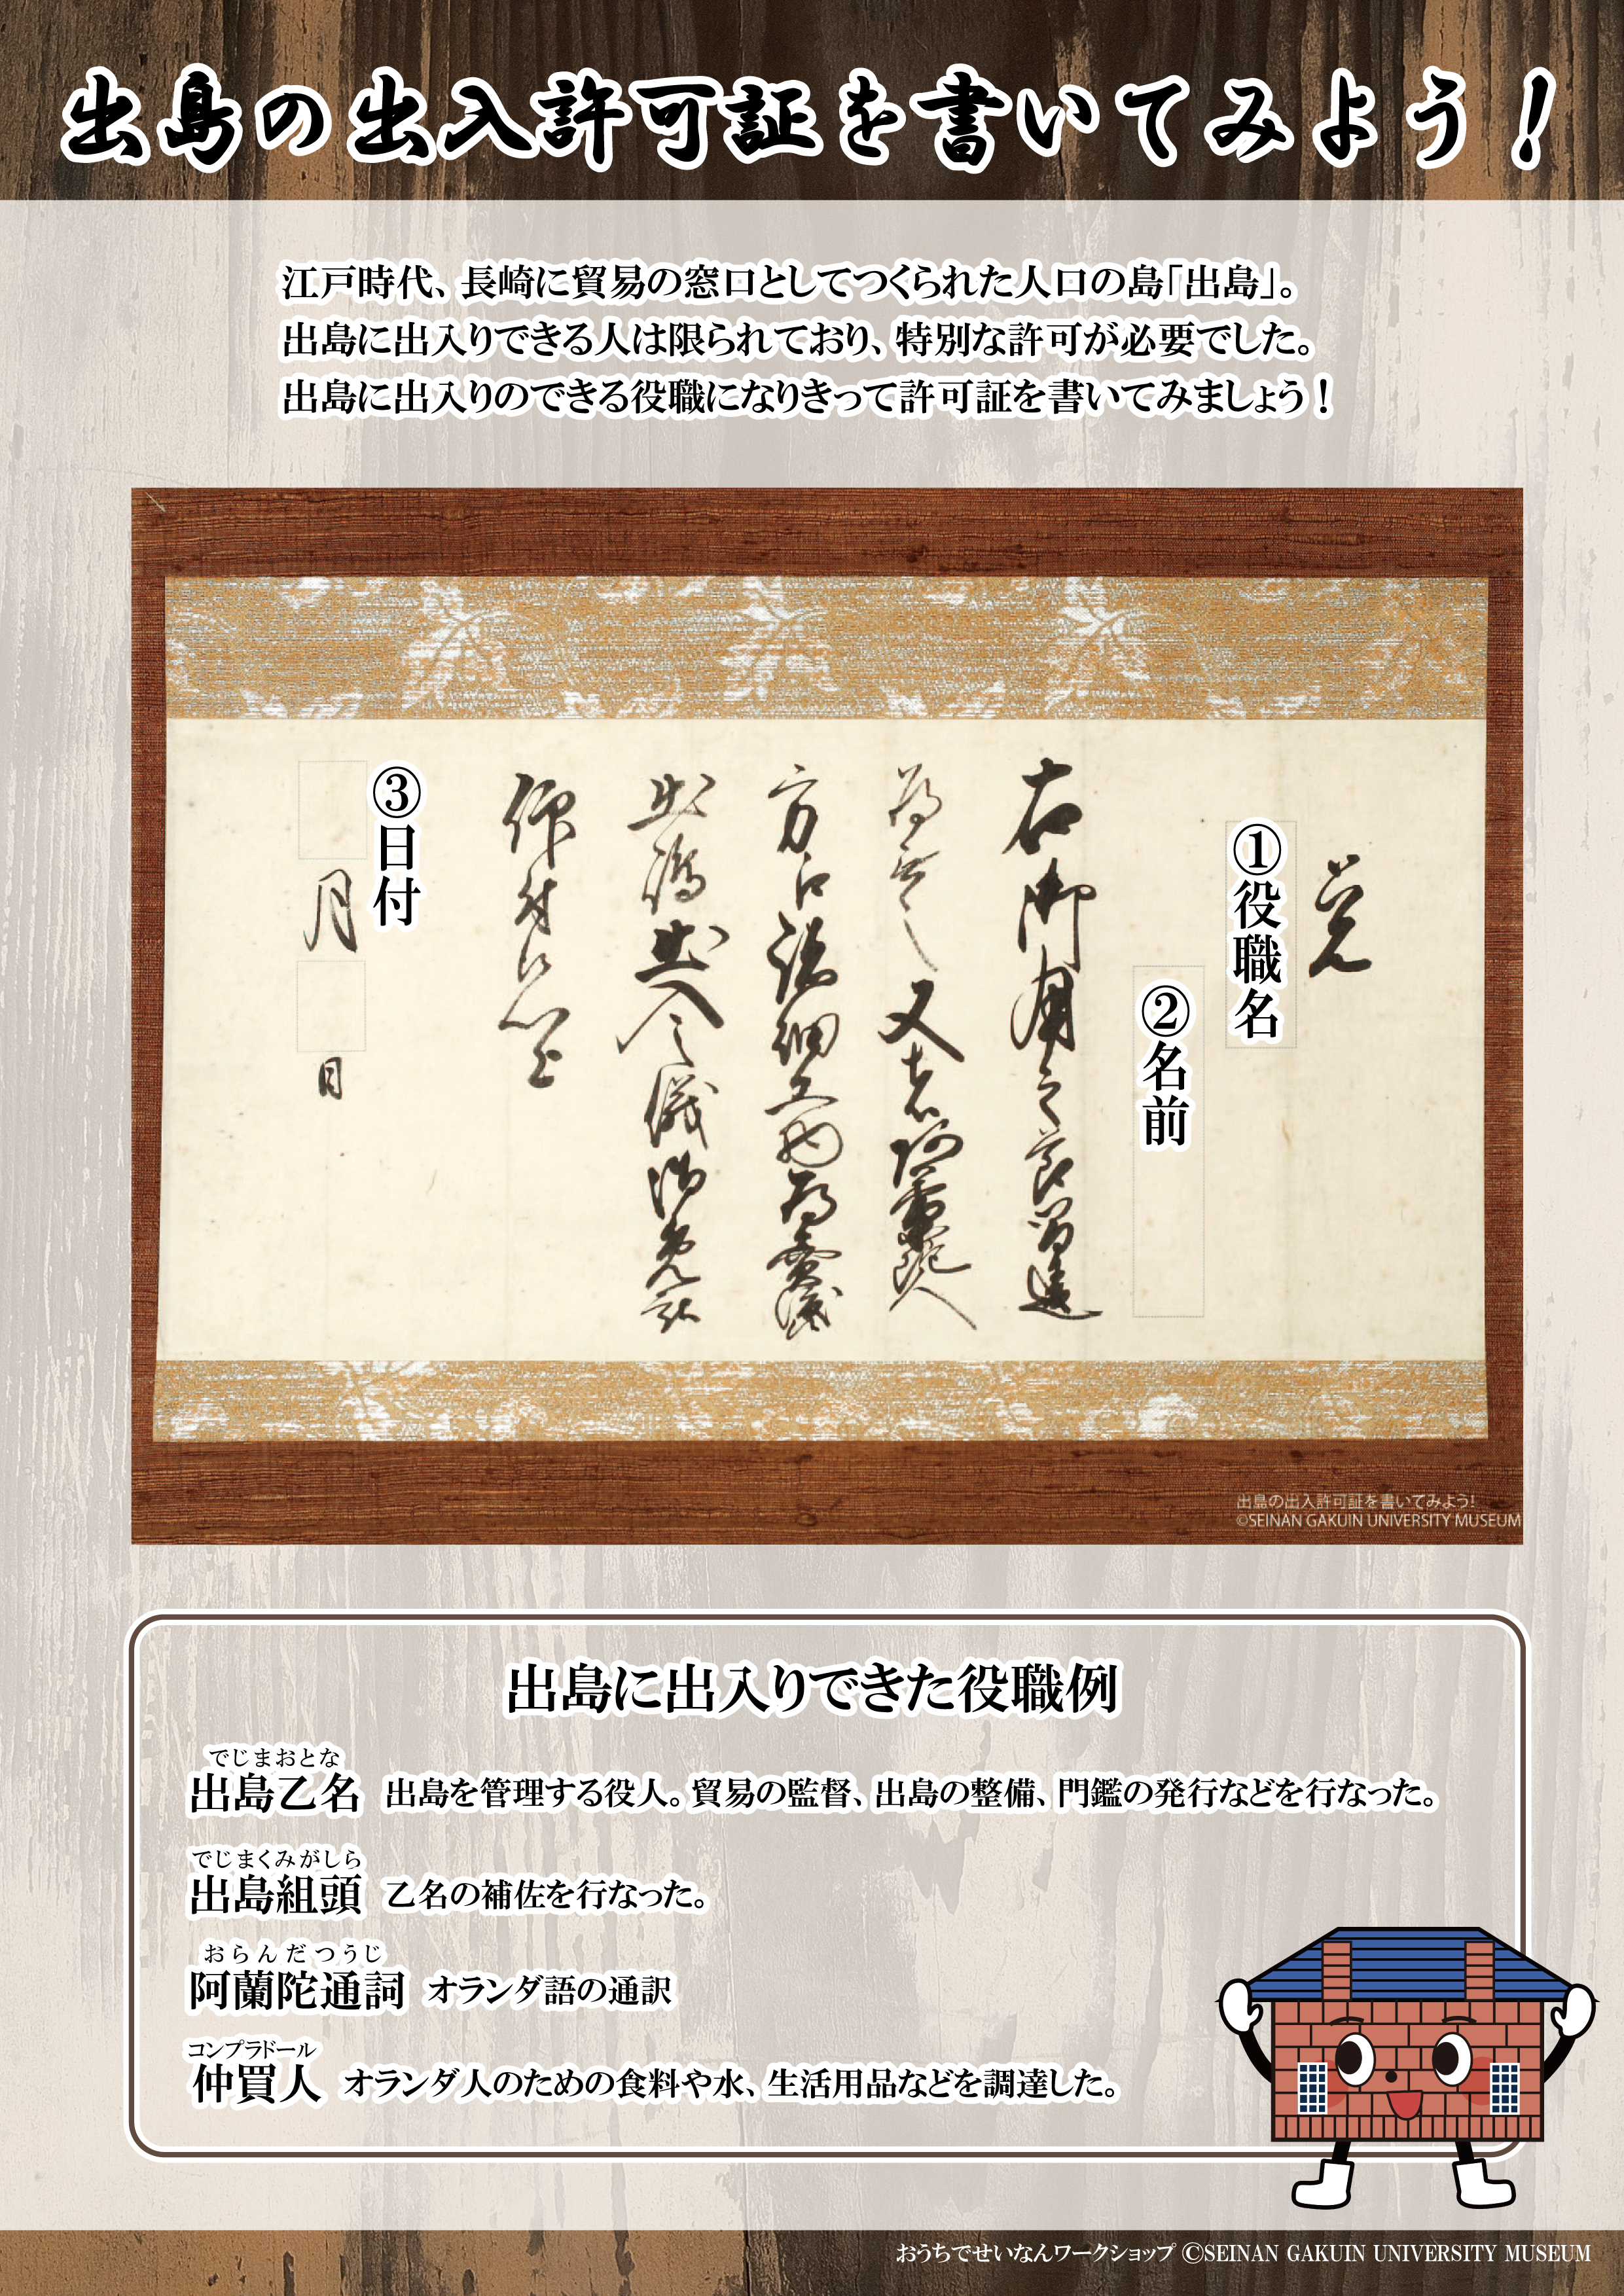 出島の出入許可証を書いてみよう！
江戸時代、長崎に貿易の窓口としてつくられた人口の島「出島」。
出島に出入りできる人は限られており、特別な許可が必要でした。
出島に出入りのできる役職になりきって許可証を書いてみましょう！
覚
①役職名
②名前
右御用之節召連
為
又者阿蘭陀人
方江誂細工物為賣渡
出嶋出入之儀御免被
仰付
③日付
月
日
出島の出入許可証を書いてみよう!
©SEINAN GAKUIN UNIVERSITY MUSEUM
出島に出入りできた役職例
でじまおとな
出島乙名 出島を管理する役人。貿易の監督、出島の整備、門鑑の発行などを行なった。
でじまくみがしら
出島組頭 乙名の補佐を行なった。
おらんだつうじ
阿蘭陀通詞 オランダ語の通訳
コンプラドール
仲買人 オランダ人のための食料や水、生活用品などを調達した。
おうちでせいなんワークショップ ©SEINAN GAKUIN UNIVERSITY MUSEUM